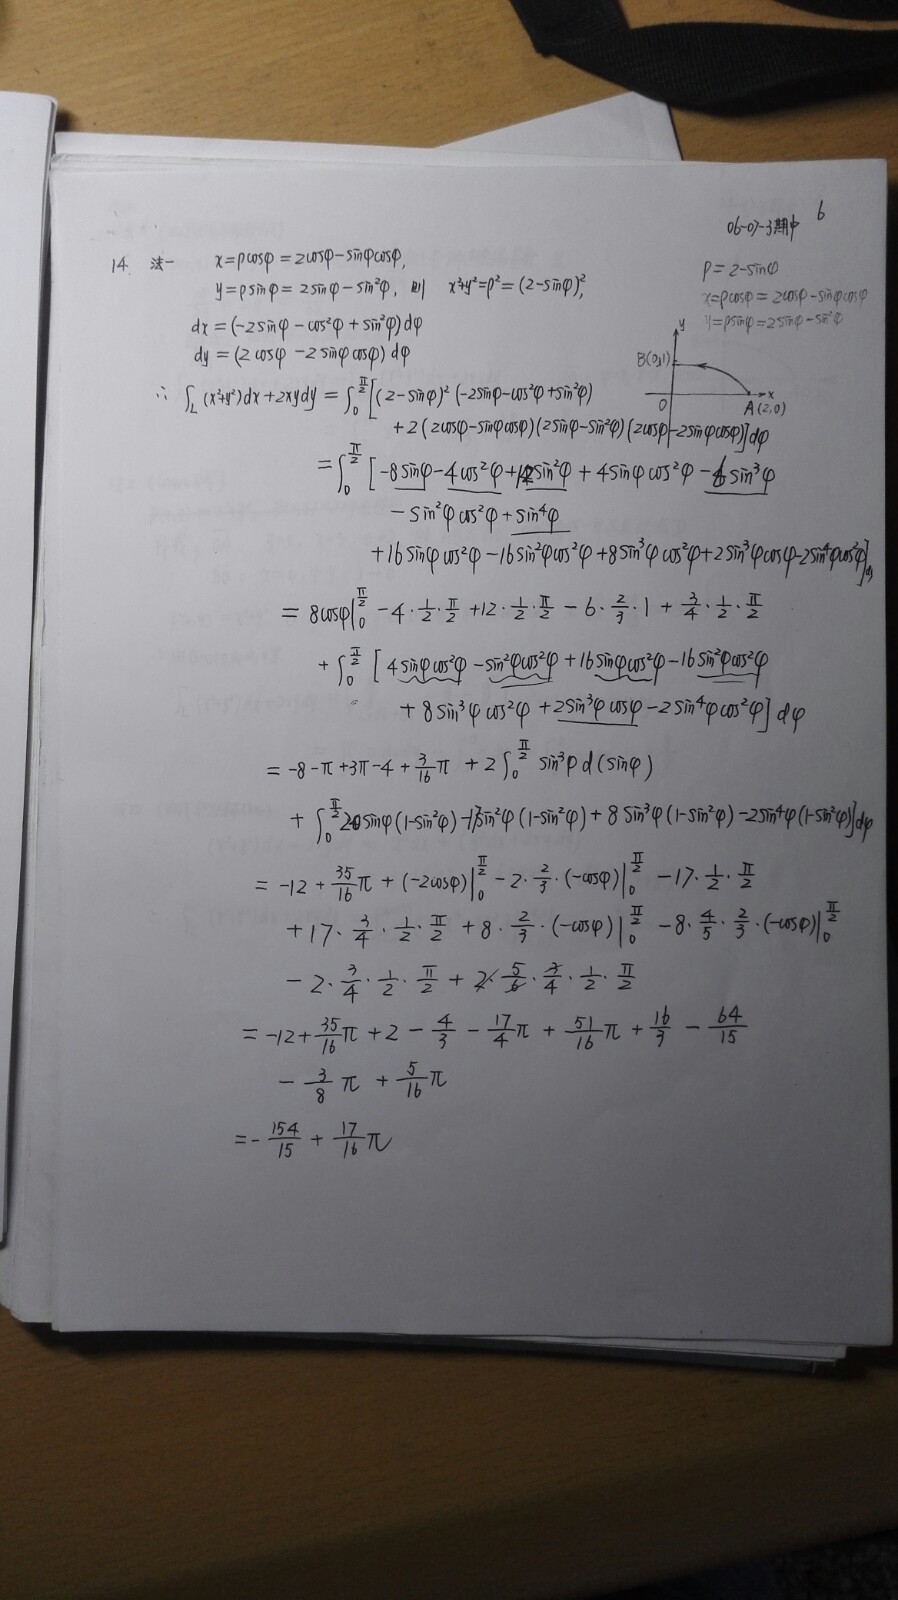 06-07-3期中 6
14. 法一 x=ρcosφ=2cosφ-sinφcosφ,
y=ρsinφ=2sinφ-sin²φ, 则 x²+y²=ρ²=(2-sinφ)²,
dx=(-2sinφ-cos²φ+sin²φ)dφ
dy=(2cosφ-2sinφcosφ)dφ
ρ=2-sinφ
x=ρcosφ=2cosφ-sinφcosφ
y=ρsinφ=2sinφ-sin²φ
y
B(0,1)
O A(2,0) x
∴ ∫_L (x²+y²)dx+2xydy=∫_0^{π/2}[(2-sinφ)²(-2sinφ-cos²φ+sin²φ)
+2(2cosφ-sinφcosφ)(2sinφ-sin²φ)(2cosφ-2sinφcosφ)]dφ
=∫_0^{π/2}[-8sinφ-4cos²φ+12sin²φ+4sinφcos²φ-6sin³φ
-sin²φcos²φ+sin⁴φ
+16sinφcos²φ-16sin²φcos²φ+8sin³φcos²φ+2sin³φcosφ-2sin⁴φcos²φ]dφ
=8cosφ|_0^{π/2}-4·1/2·π/2+12·1/2·π/2-6·2/3·1+3/4·1/2·π/2
+∫_0^{π/2}[4sinφcos²φ-sin²φcos²φ+16sinφcos²φ-16sin²φcos²φ
+8sin³φcos²φ+2sin³φcosφ-2sin⁴φcos²φ]dφ
=-8-π+3π-4+3/16π+2∫_0^{π/2}sin³φd(sinφ)
+∫_0^{π/2}20sinφ(1-sin²φ)-17sin²φ(1-sin²φ)+8sin³φ(1-sin²φ)-2sin⁴φ(1-sin²φ)]dφ
=-12+35/16π+(-2cosφ)|_0^{π/2}-2·2/3·(-cosφ)|_0^{π/2}-17·1/2·π/2
+17·3/4·1/2·π/2+8·2/3·(-cosφ)|_0^{π/2}-8·4/5·2/3·(-cosφ)|_0^{π/2}
-2·3/4·1/2·π/2+2·5/6·3/4·1/2·π/2
=-12+35/16π+2-4/3-17/4π+51/16π+16/3-64/15
-3/8π+5/16π
=-154/15+17/16π